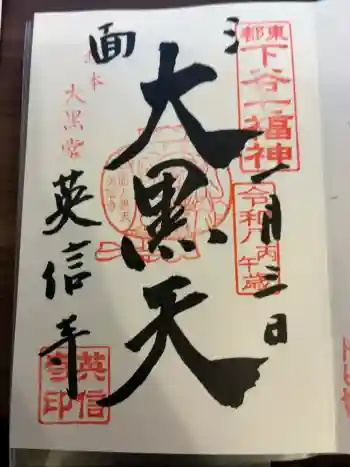 東都
下谷七福神
令和八丙午歳
一月三日
大黒天
三面
大黒堂
英信寺
英信寺印